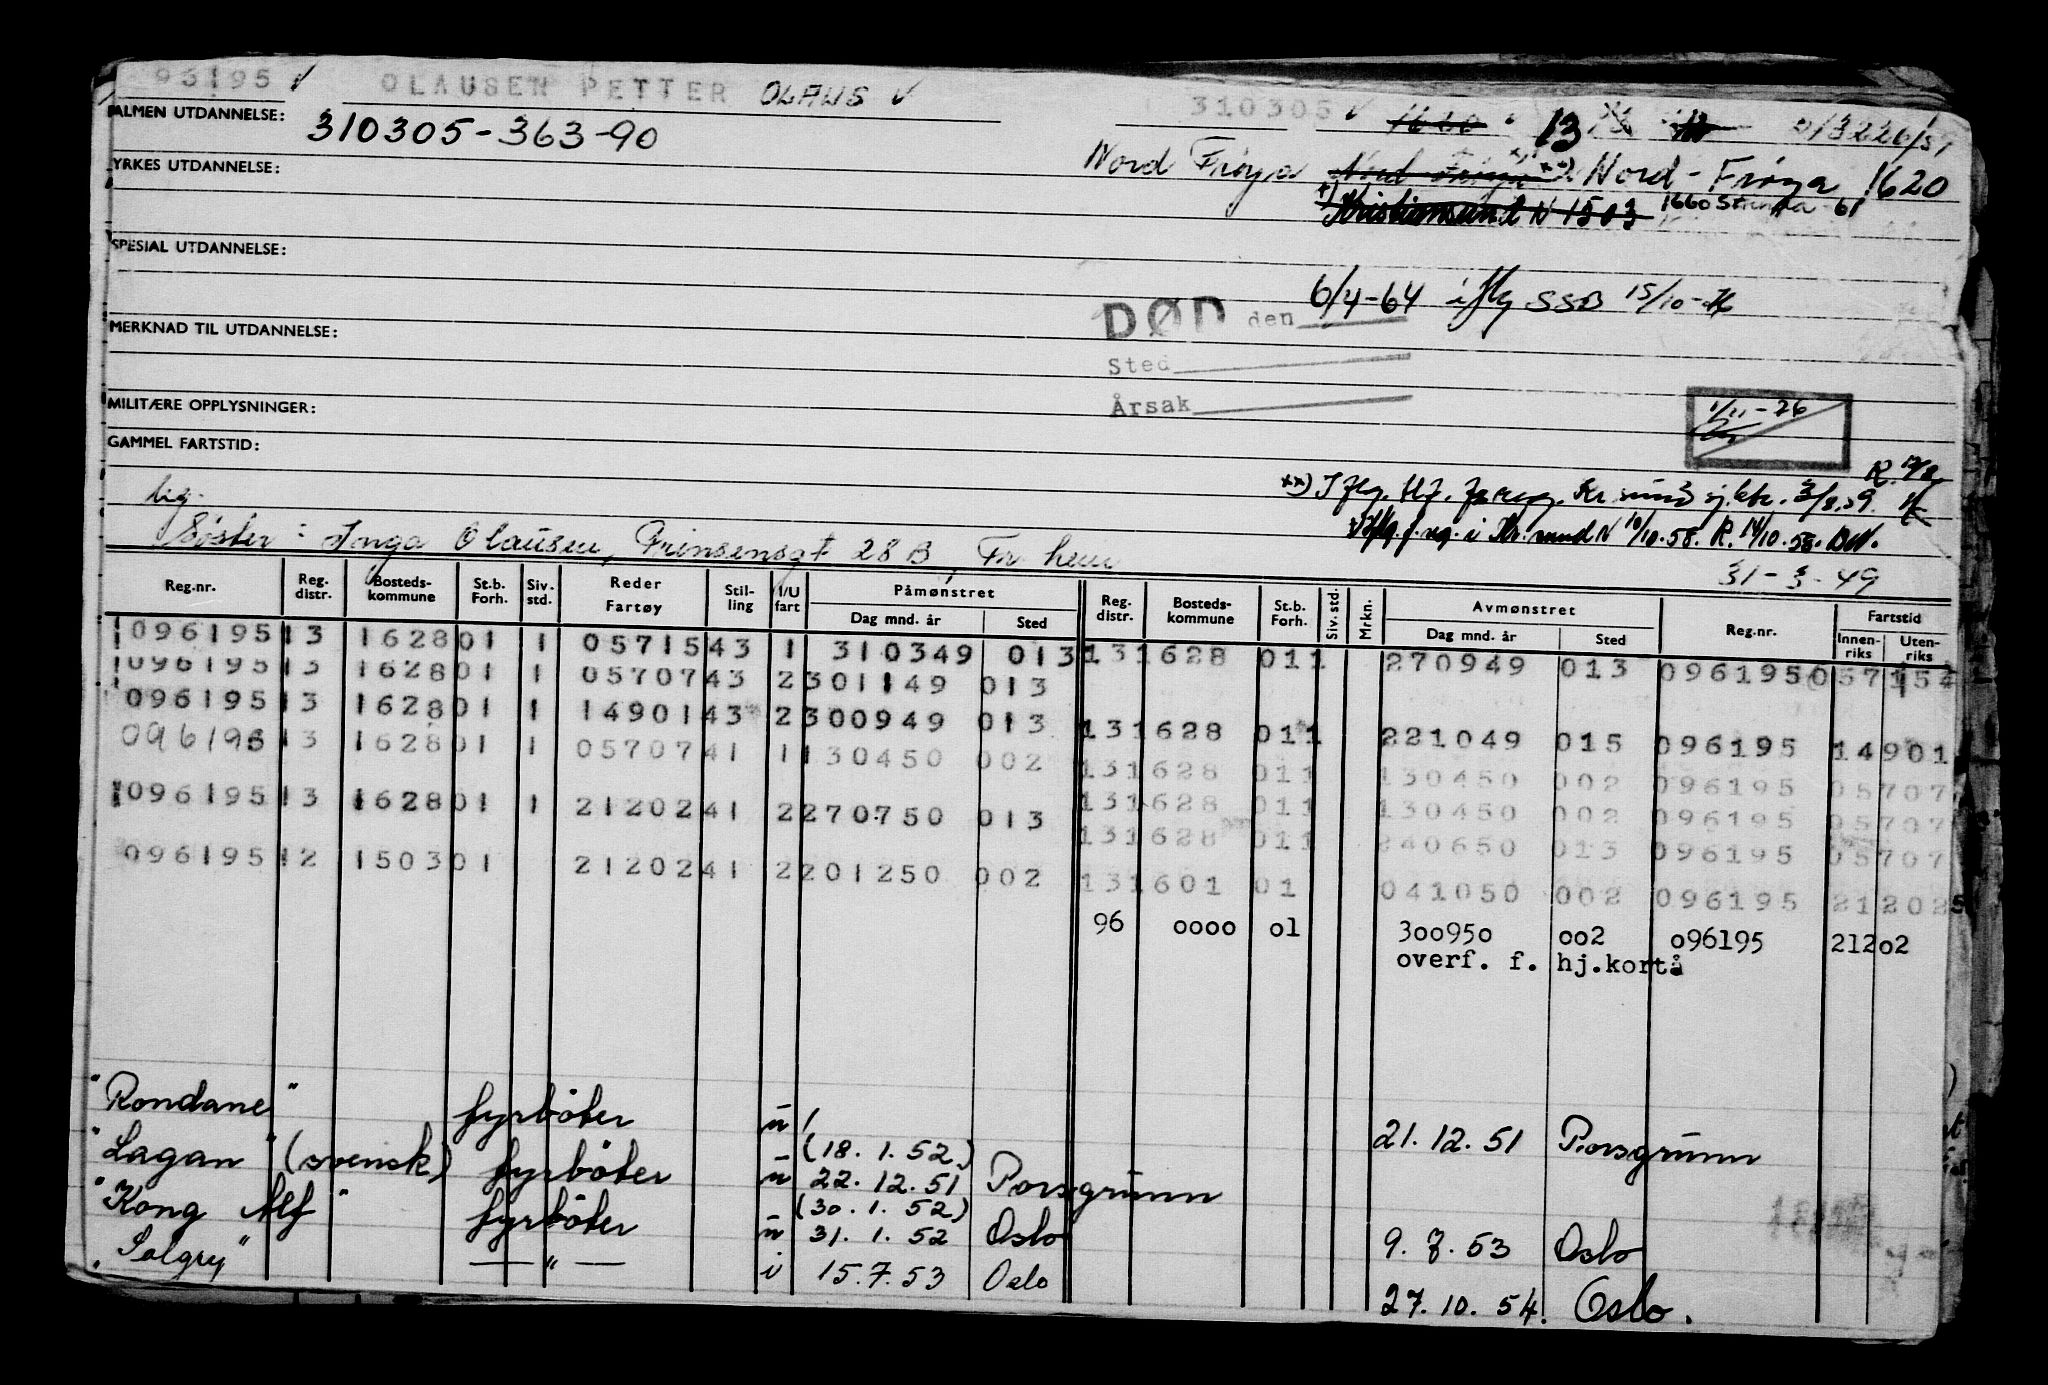 96195 ✓ OLAUSEN PETTER OLAUS ✓ 310305 ✓ 1660 13
ALMEN UTDANNELSE: 310305-363-90
Nord Frøya Nord Frøya xx) Nord-Frøya 1620
YRKES UTDANNELSE:
x) Kristiansund N 1503 1660 Strinda 61
SPESIAL UTDANNELSE:
DØD den 6/4-64 iflg SSB 15/10-
Sted
MERKNAD TIL UTDANNELSE:
Årsak
MILITÆRE OPPLYSNINGER:
1/11-26
GAMMEL FARTSTID:
xx) Iflg. Kr. sund 3/8.59.
Søster: Inga Olausen, Prinsensgt 28 B, Tr. heim
i Kr. sund N 10/10.58. R. 14/10.58.
31-3-49
Reg.nr. Reg. distr. Bosteds-kommune St.b. Forh. Siv. std. Reder Fartøy Stil-ling I/U fart Påmønstret Dag mnd. år Sted Reg. distr. Bosteds-kommune St.b. Forh. Siv. std. Mrkn. Avmønstret Dag mnd. år Sted Reg.nr. Fartstid Innen-riks Uten-riks
096195 13 1628 01 1 05715 43 1 310349 013 13 1628 01 1 270949 013 096195 057154
096195 13 1628 01 1 05707 43 2 301149 013
096195 13 1628 01 1 14901 43 2 300949 013 13 1628 01 1 221049 015 096195 14901
096195 13 1628 01 1 05707 41 1 130450 002 13 1628 01 1 130450 002 096195 05707
13 1628 01 1 130450 002 096195 05707
096195 13 1628 01 1 21202 41 2 270750 013 13 1628 01 1 240650 013 096195 05707
096195 12 1503 01 21202 41 2 201250 002 13 1601 01 041050 002 096195 21202
96 oooo o1 3oo95o oo2 o96195 212o2
overf. f. hj.kortå
"Rondane" fyrbøter u 21.12.51 Porsgrunn
(18.1.52)
"Lagan" (svensk) fyrbøter u 22.12.51 Porsgrunn
(30.1.52)
"Kong Alf" fyrbøter u 31.1.52 Oslo 9.7.53 Oslo
"Solgry" — " — i 15.7.53 Oslo 27.10.54. Oslo.